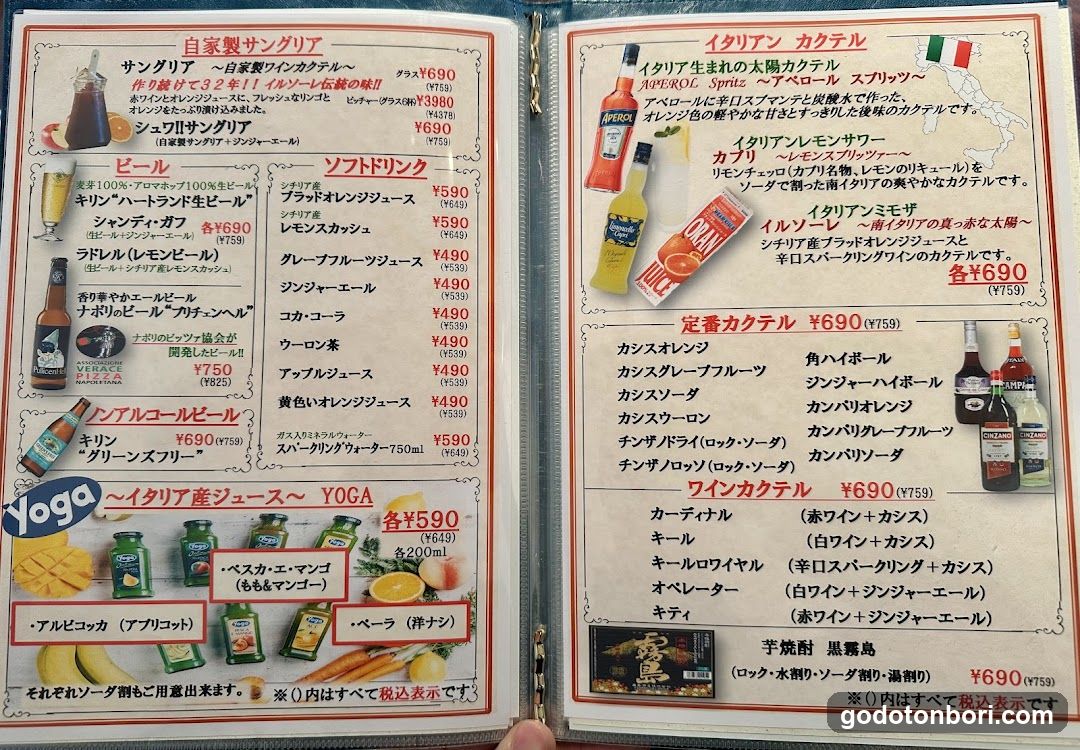 自家製サングリア
サングリア ～自家製ワインカクテル～
作り続けて32年!! イルソーレ伝統の味!!
グラス¥690
(¥759)
赤ワインとオレンジジュースに、フレッシュなリンゴと
オレンジをたっぷり漬け込みました。
ピッチャーグラス(5杯) ¥3980
(¥4378)
シュワ!!サングリア
(自家製サングリア+ジンジャーエール)
¥690
(¥759)
ビール
麦芽100%・アロマホップ100%生ビール
キリン“ハートランド生ビール”
シャンディ・ガフ
(生ビール+ジンジャーエール)
各¥690
(¥759)
ラドレル(レモンビール)
(生ビール+シチリア産レモンスカッシュ)
香り華やかエールビール
ナポリのビール“プリチェンヘル”
ナポリのピッツァ協会が
開発したビール!!
PullicenHell
ASSOCIAZIONE
VERACE
PIZZA
NAPOLETANA
¥750
(¥825)
ノンアルコールビール
キリン
“グリーンズフリー”
¥690(¥759)
ソフトドリンク
シチリア産
ブラッドオレンジジュース ¥590
(¥649)
シチリア産
レモンスカッシュ ¥590
(¥649)
グレープフルーツジュース ¥490
(¥539)
ジンジャーエール ¥490
(¥539)
コカ・コーラ ¥490
(¥539)
ウーロン茶 ¥490
(¥539)
アップルジュース ¥490
(¥539)
黄色いオレンジジュース ¥490
(¥539)
ガス入りミネラルウォーター
スパークリングウォーター750ml ¥590
(¥649)
Yoga
～イタリア産ジュース～ YOGA
各¥590
(¥649)
各200ml
・ペスカ・エ・マンゴ
(もも&マンゴー)
・アルビコッカ (アプリコット)
・ペーラ (洋ナシ)
それぞれソーダ割もご用意出来ます。
※()内はすべて税込表示です
イタリアン カクテル
イタリア生まれの太陽カクテル
APEROL Spritz ～アペロール スプリッツ～
アペロールに辛口スプマンテと炭酸水で作った、
オレンジ色の軽やかな甘さとすっきりした後味のカクテルです。
APEROL
イタリアンレモンサワー
カプリ ～レモンスプリッツァー～
リモンチェッロ(カプリ名物、レモンのリキュール)を
ソーダで割った南イタリアの爽やかなカクテルです。
Limoncello
Capri
ORAN
JUICE
イタリアンミモザ
イルソーレ ～南イタリアの真っ赤な太陽～
シチリア産ブラッドオレンジジュースと
辛口スパークリングワインのカクテルです。
各¥690
(¥759)
定番カクテル ¥690(¥759)
カシスオレンジ
カシスグレープフルーツ
カシスソーダ
カシスウーロン
チンザノドライ(ロック・ソーダ)
チンザノロッソ(ロック・ソーダ)
角ハイボール
ジンジャーハイボール
カンパリオレンジ
カンパリグレープフルーツ
カンパリソーダ
CAMPA
CINZANO
CINZANO
ワインカクテル ¥690(¥759)
カーディナル (赤ワイン+カシス)
キール (白ワイン+カシス)
キールロワイヤル (辛口スパークリング+カシス)
オペレーター (白ワイン+ジンジャーエール)
キティ (赤ワイン+ジンジャーエール)
霧島
芋焼酎 黒霧島
(ロック・水割り・ソーダ割り・湯割り) ¥690(¥759)
※()内はすべて税込表示です
godotonbori.com